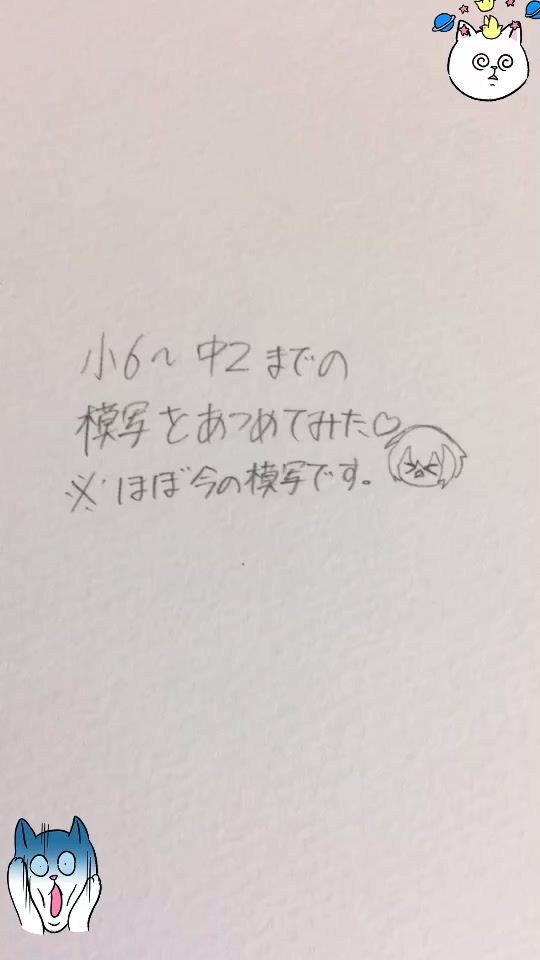 小6～中2までの
模写をあつめてみた♡
※ほぼ今の模写です。